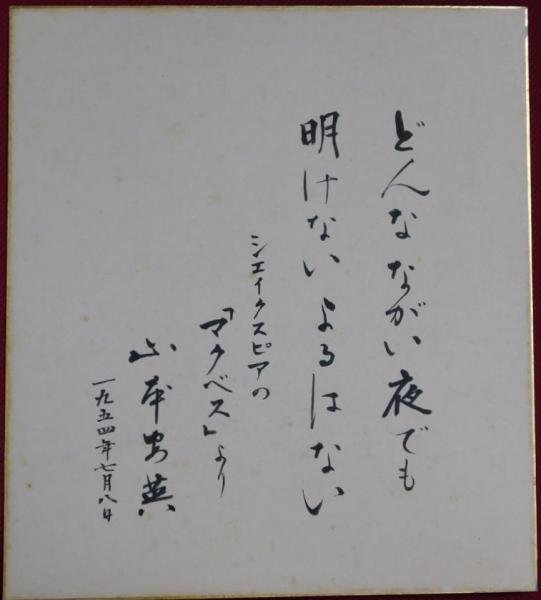 どんな ながい夜でも
明けない よるはない
シエイクスピアの
『マクベス』より
山本安英
一九五四年七月八日